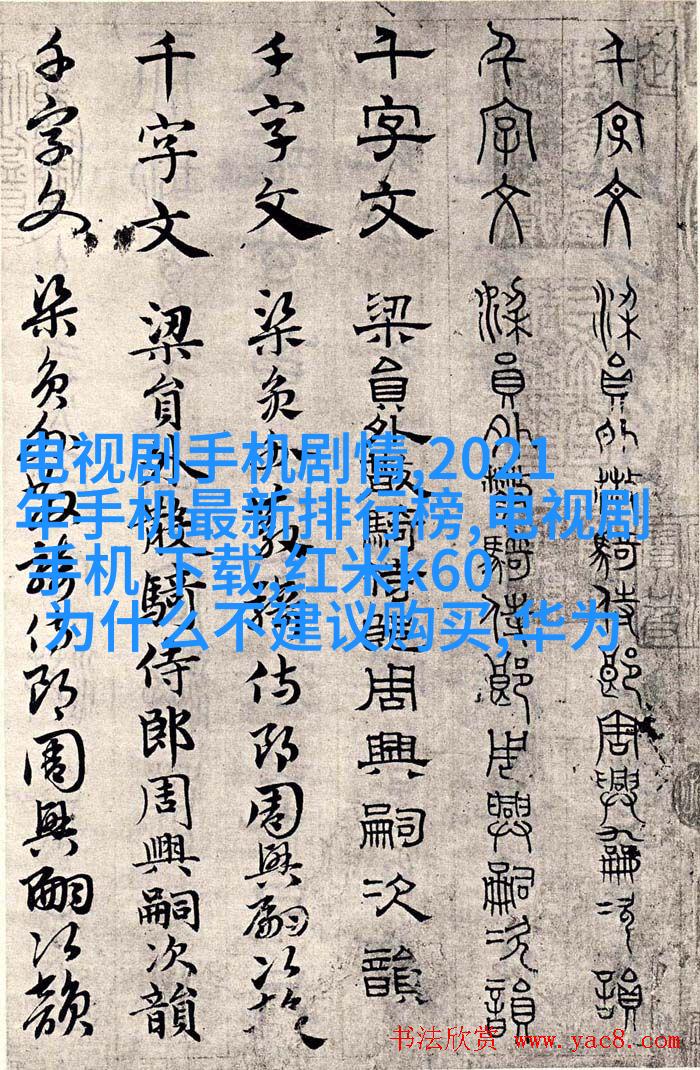 千字文 梁員外散騎侍郎周興嗣次韻
千字文 梁員外散騎侍郎周興嗣次韻
千字文 梁員外散騎侍郎周興嗣次韻
千字文 梁員外散騎侍郎周興嗣次韻
千字文 梁員外散騎侍郎周興嗣次韻
千字文 梁員外散騎侍郎周興嗣次韻
电视剧手机剧情,2021
年手机最新排行榜,电视剧
手机 下载,红米k60
为什么不建议购买,华为
书法欣赏 www.yac8.com